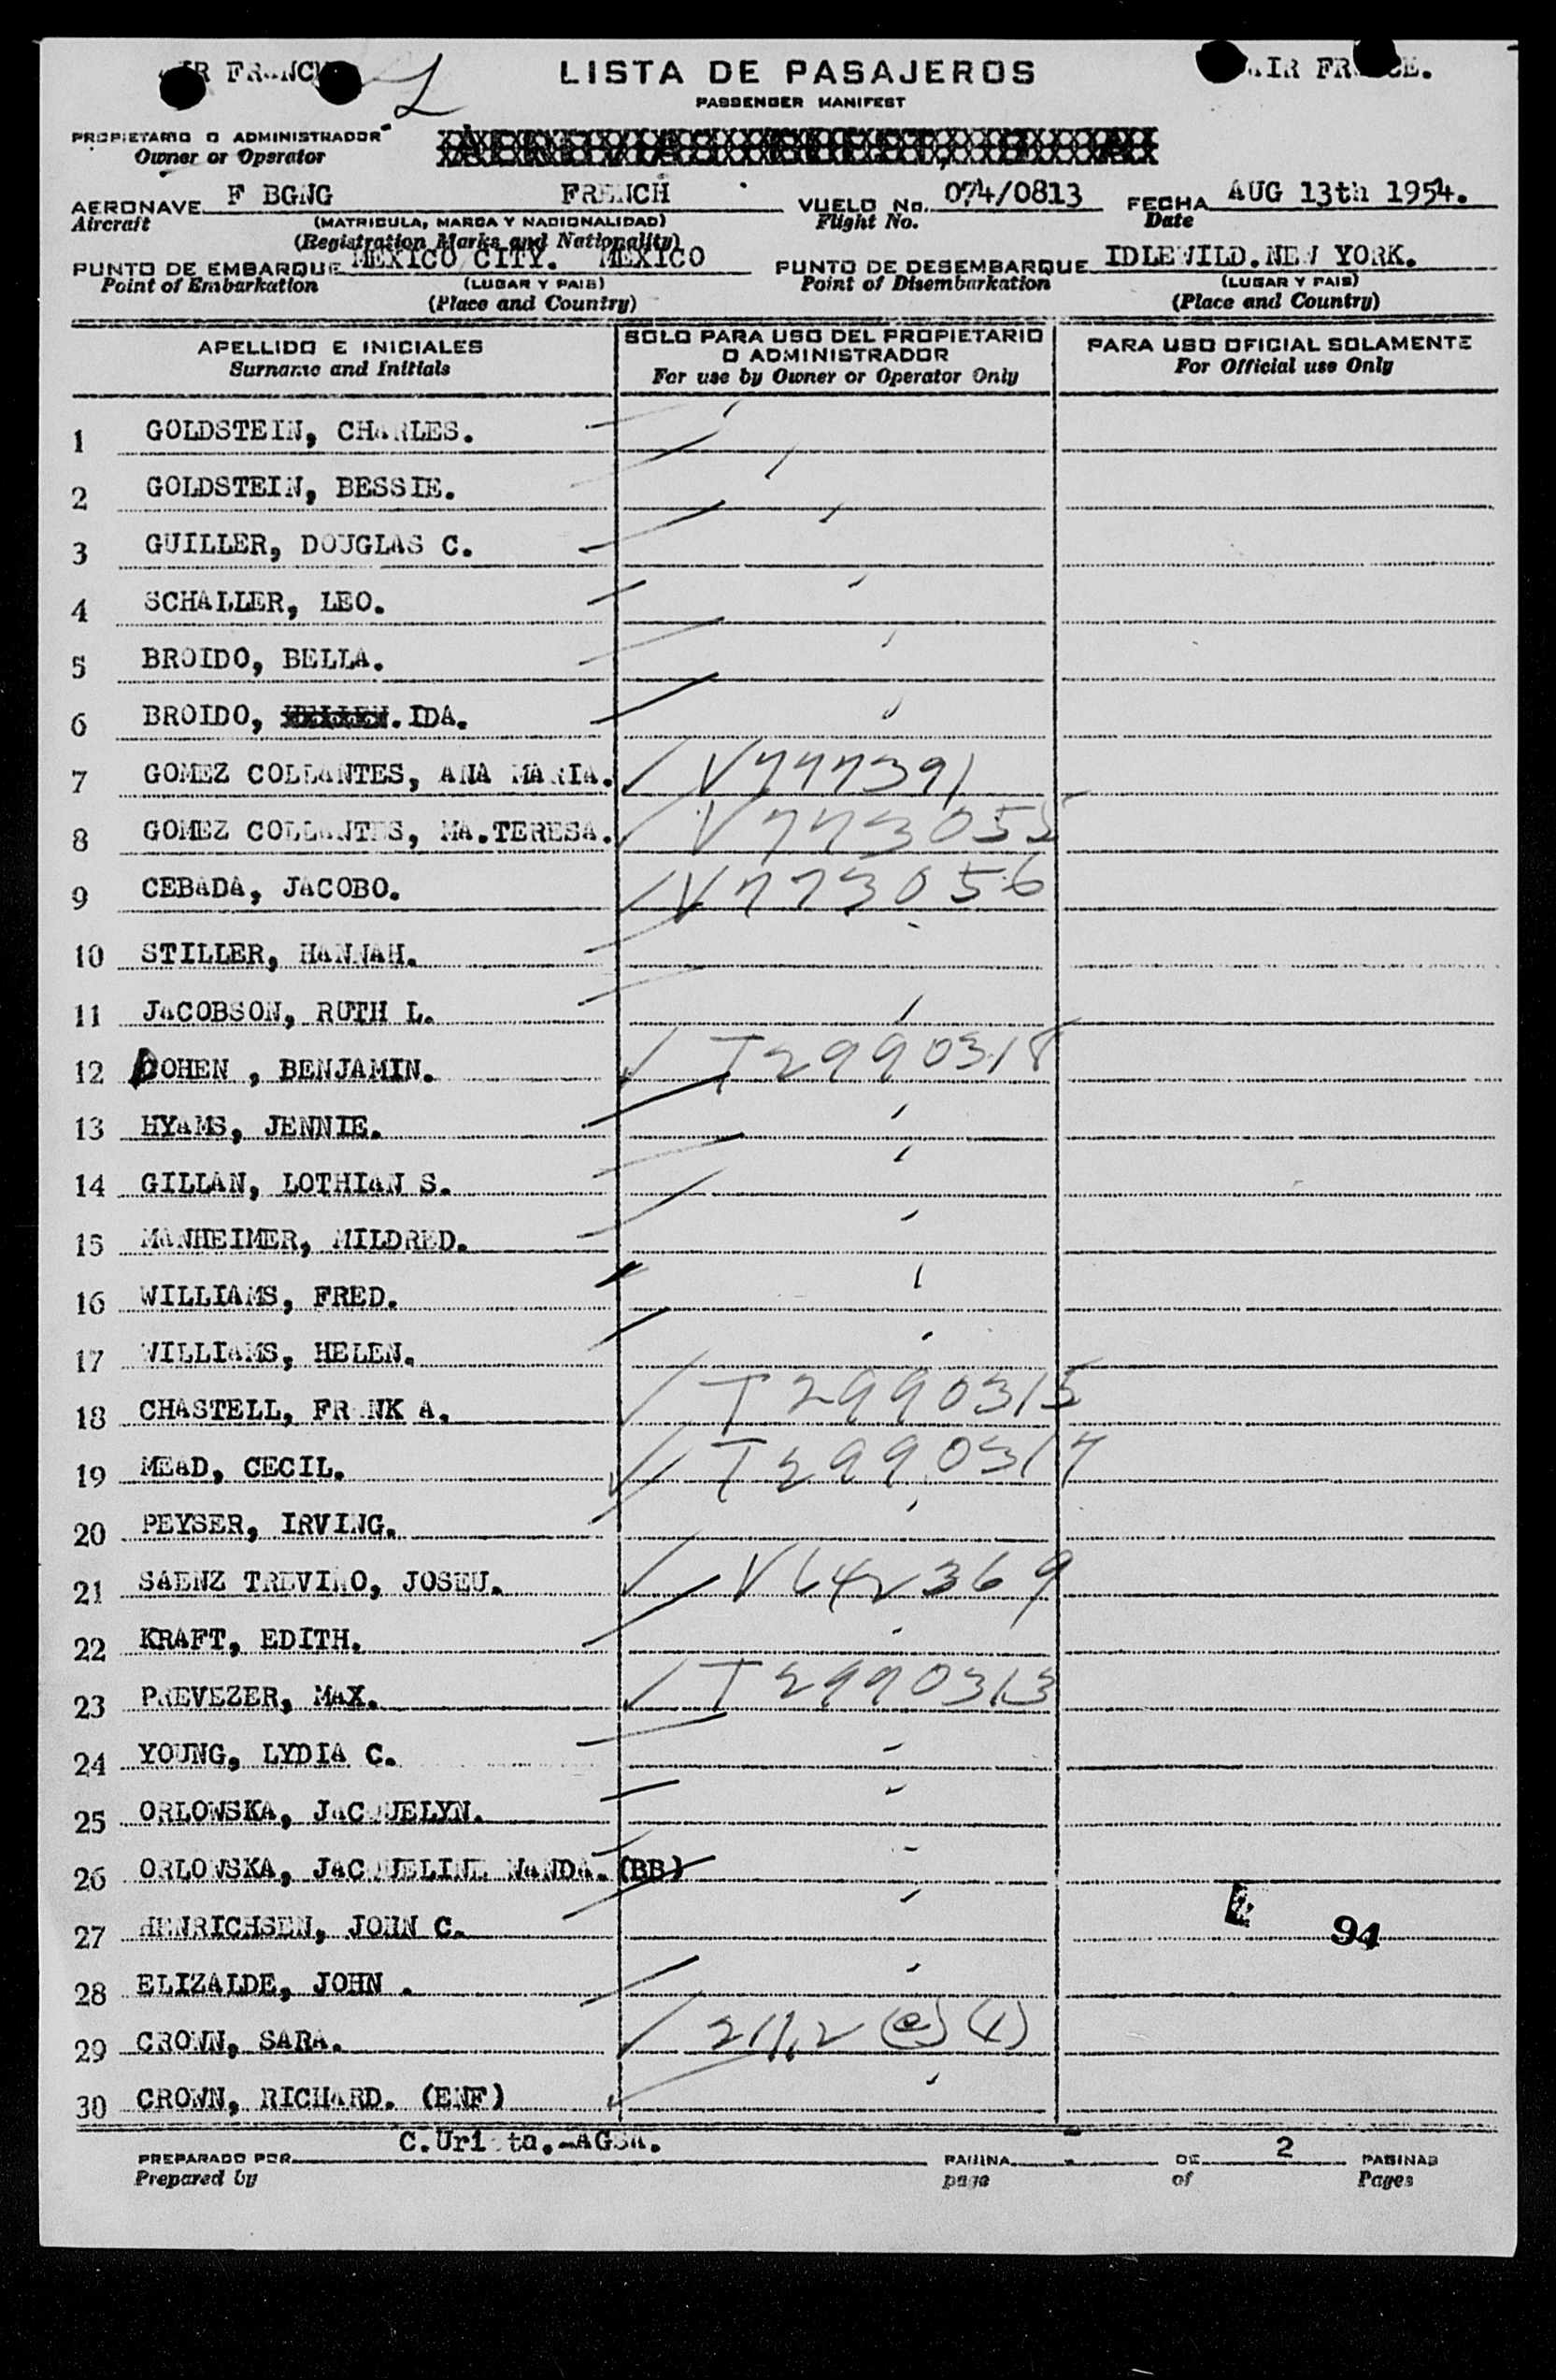 AIR FRANCE
LISTA DE PASAJEROS
AIR FRANCE.
PASSENGER MANIFEST
PROPIETARIO O ADMINISTRADOR
Owner or Operator
AERONAVE F BGNG FRENCH VUELO No. 074/0813 FECHA AUG 13th 1954.
Aircraft (MATRICULA, MARCA Y NACIONALIDAD) Flight No. Date
(Registration Marks and Nationality)
PUNTO DE EMBARQUE MEXICO CITY. MEXICO PUNTO DE DESEMBARQUE IDLEWILD.NEW YORK.
Point of Embarkation (LUGAR Y PAIS) Point of Disembarkation (LUGAR Y PAIS)
(Place and Country) (Place and Country)
APELLIDO E INICIALES
Surname and Initials
SOLO PARA USO DEL PROPIETARIO
O ADMINISTRADOR
For use by Owner or Operator Only
PARA USO OFICIAL SOLAMENTE
For Official use Only
1 GOLDSTEIN, CHARLES.
2 GOLDSTEIN, BESSIE.
3 GUILLER, DOUGLAS C.
4 SCHALLER, LEO.
5 BROIDO, BELLA.
6 BROIDO, .IDA.
7 GOMEZ COLLANTES, ANA MARIA. V777391
8 GOMEZ COLLANTES, MA.TERESA. V773055
9 CEBADA, JACOBO. V773056
10 STILLER, HANNAH.
11 JACOBSON, RUTH L.
12 COHEN , BENJAMIN. T2990318
13 HYAMS, JENNIE.
14 GILLAN, LOTHIAN S.
15 MANHEIMER, MILDRED.
16 WILLIAMS, FRED.
17 WILLIAMS, HELEN.
18 CHASTELL, FRANK A. T2990315
19 MEAD, CECIL. T2990317
20 PEYSER, IRVING.
21 SAENZ TREVINO, JOSEU. V642369
22 KRAFT, EDITH.
23 PREVEZER, MAX. T2990313
24 YOUNG, LYDIA C.
25 ORLOWSKA, JACQUELYN.
26 ORLOWSKA, JACQUELINE WANDA. (BB)
27 HENRICHSEN, JOHN C. 94
28 ELIZALDE, JOHN .
29 CROWN, SARA. 211.2 (e) (1)
30 CROWN, RICHARD. (ENF)
PREPARADO POR PAGINA DE 2 PAGINAS
Prepared by page of Pages